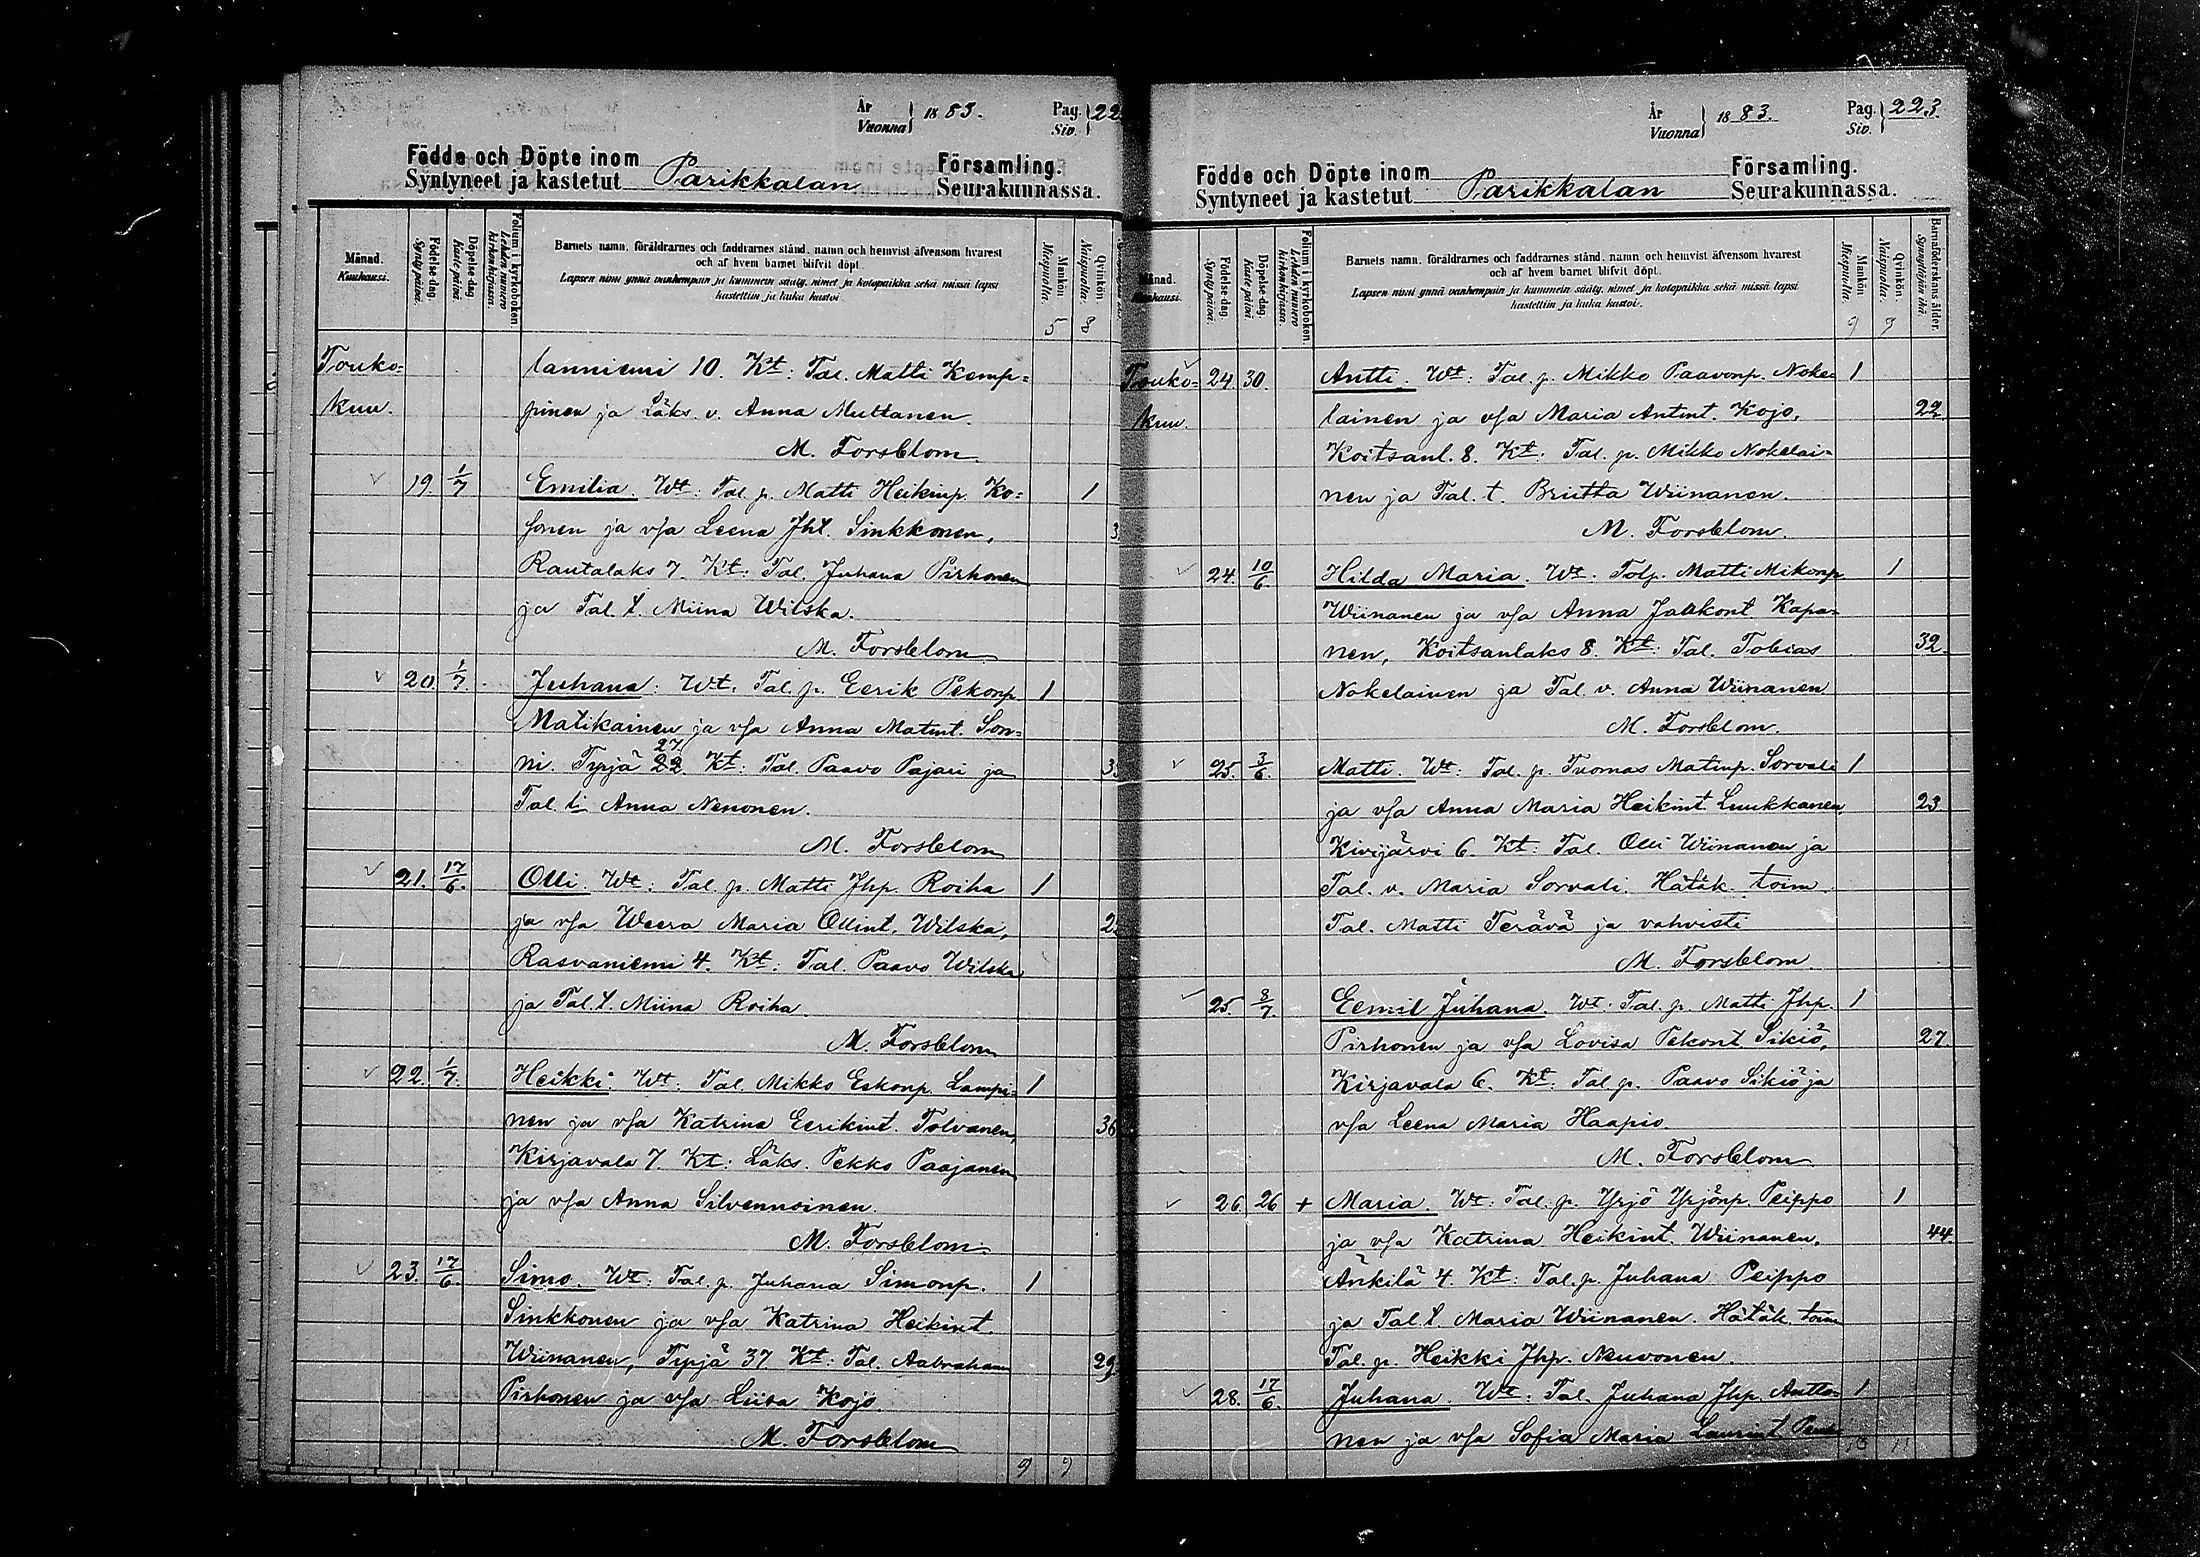 År Vuonna } 1883. Pag. Siv. } 22
Födde och Döpte inom Församling.
Syntyneet ja kastetut Parikkalan Seurakunnassa.
Månad. Kuukausi.
Födelse-dag. Synty päivä.
Döpelse-dag. Kaste päivä.
Folium i kyrkoboken. Lehden numero kirkonkirjassa.
Barnets namn, föräldrarnes och faddrarnes stånd, namn och hemvist äfvensom hvarest
och af hvem barnet blifvit döpt.
Lapsen nimi ynnä vanhempain ja kummein sääty, nimet ja kotopaikka sekä missä lapsi
kastettiin ja kuka kastoi.
Mankön Miespuolia. 5
Qvinkön Naispuolia. 8
Touko= lanniemi 10. Kt: Tal. Matti Kemp=
kuu. pinen ja Läks. v. Anna Muttanen.
M. Forsblom.
19. 1/7 Emilia. Wt: Tal. p. Matti Heikinp. Ko= 1
sonen ja vsa Leena Jht. Sinkkonen, 3
Rautalaks 7. Kt: Tal. Juhana Pirhonen
ja Tal. t. Miina Wilska.
M. Forsblom
20. 1/7. Juhana: Wt. Tal. p. Eerik Pekonp. 1
Matikainen ja vsa Anna Matint. Son=
27
ni. Tyrjä 22 Kt: Tal. Paavo Pajari ja 3
Tal. ti Anna Nenonen.
M. Forsblom
21. 17/6. Olli. Wt: Tal. p. Matti Jhp. Roiha 1
ja vsa Weera Maria Ollint. Wilska, 2
Rasvaniemi 4. Kt: Tal. Paavo Wilska
ja Tal. t. Miina Roiha.
M. Forsblom
22. 1/7. Heikki. Wt: Tal. Mikko Eskonp. Lampi= 1
nen ja vsa Katrina Eerikint. Tolvanen, 36
Kirjavala 7. Kt: Läks. Pekko Paajanen
ja vsa Anna Silvennoinen.
M. Forsblom
23. 17/6 Simo. Wt: Tal. p. Juhana Simonp. 1
Sinkkonen ja vsa Katrina Heikint.
Wiinanen, Tyrjä 37 Kt: Tal. Aabraham 29
Pirhonen ja vsa Liisa Kojo.
M. Forsblom
9 9
År Vuonna } 1883. Pag. Siv. } 223.
Födde och Döpte inom Församling.
Syntyneet ja kastetut Parikkalan Seurakunnassa.
Månad. Kuukausi.
Födelse-dag. Synty päivä.
Döpelse-dag. Kaste päivä.
Folium i kyrkoboken. Lehden numero kirkonkirjassa.
Barnets namn, föräldrarnes och faddrarnes stånd, namn och hemvist äfvensom hvarest
och af hvem barnet blifvit döpt.
Lapsen nimi ynnä vanhempain ja kummein sääty, nimet ja kotopaikka sekä missä lapsi
kastettiin ja kuka kastoi.
Mankön Miespuolia. 9
Qvinkön. Naispuolia. 9
Barnaföderskans ålder. Synnyttäjän ikä.
Touko= 24. 30. Antti. Wt: Tal. p. Mikko Paavonp. Noke= 1
kuu. lainen ja vsa Maria Antint. Kojo, 22
Koitsanl. 8. Kt. Tal. p. Mikko Nokelai=
nen ja Tal. t. Briitta Wiinanen.
M. Forsblom.
24. 10/6. Hilda Maria. Wt: Tal p. Matti Mikonp. 1
Wiinanen ja vsa Anna Jaakkont. Kapa=
nen, Koitsanlaks 8. Kt: Tal. Tobias 32.
Nokelainen ja Tal. v. Anna Wiinanen
M. Forsblom.
25. 3/6. Matti. Wt: Tal. p. Tuomas Matinp. Sorvali 1
ja vsa Anna Maria Heikint. Luukkanen, 23.
Kivijärvi 6. Kt: Tal. Olli Wiinanen ja
Tal. v. Maria Sorvali. Hätäk. toim.
Tal. Matti Terävä ja vahvisti
M. Forsblom
25. 8/7. Eemil Juhana. Wt: Tal. p. Matti Jhp. 1
Pirhonen ja vsa Lovisa Pekont. Sikiö, 27.
Kirjavala 6. Kt: Tal. p. Paavo Sikiö ja
vsa Leena Maria Haapio
M. Forsblom
26. 26 + Maria. Wt: Tal. p. Yrjö Yrjönp. Peippo 1
ja vsa Katrina Heikint. Wiinanen, 44.
Änkilä 4. Kt: Tal. p. Juhana Peippo
ja Tal. t. Maria Wiinanen. Hätäk. toim
Tal. p. Heikki Jhp. Neuvonen.
28. 17/6. Juhana. Wt: Tal. Juhana Jhp. Antto= 1
nen ja vsa Sofia Maria Laurint
11